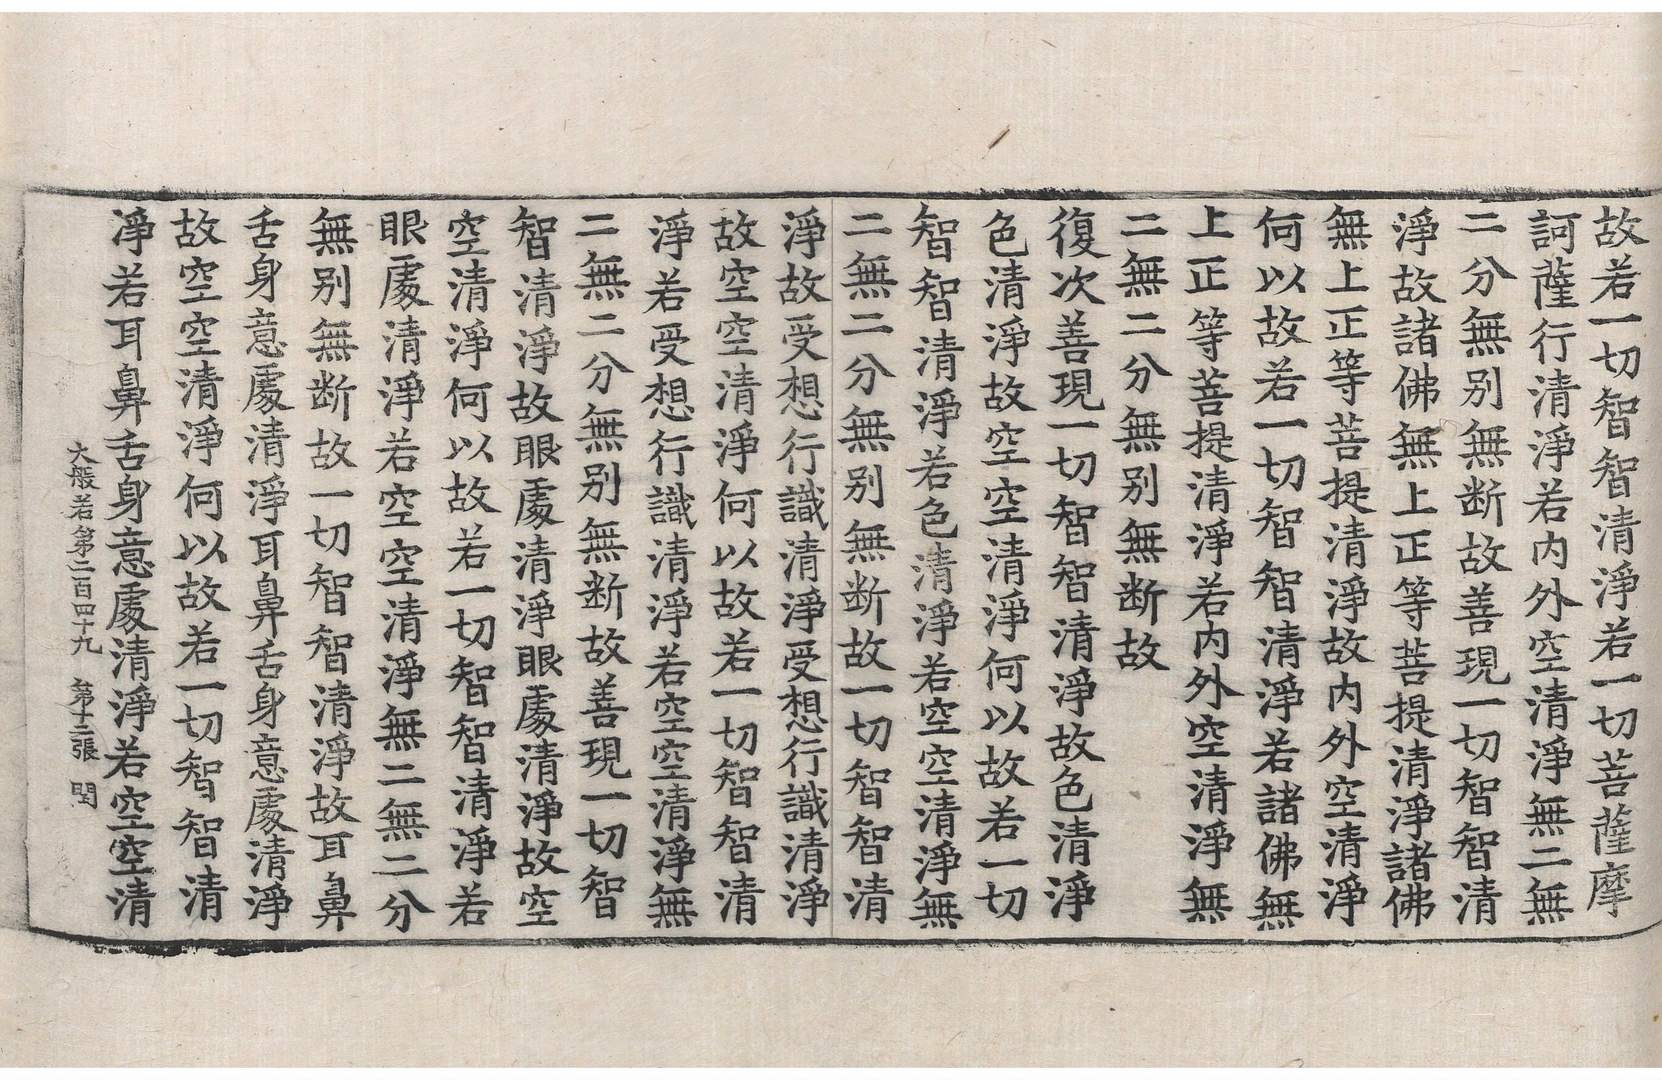 故若一切智智清淨若一切菩薩摩
訶薩行清淨若内外空清淨無二無
二分無别無断故善現一切智智清
淨故諸佛無上正等菩提清淨諸佛
無上正等菩提清淨故内外空清淨
何以故若一切智智清淨若諸佛無
上正等菩提清淨若内外空清淨無
二無二分無别無断故
復次善現一切智智清淨故色清淨
色清淨故空空清淨何以故若一切
智智清淨若色清淨若空空清淨無
二無二分無别無断故一切智智清
淨故受想行識清淨受想行識清淨
故空空清淨何以故若一切智智清
淨若受想行識清淨若空空清淨無
二無二分無别無断故善現一切智
智清淨故眼處清淨眼處清淨故空
空清淨何以故若一切智智清淨若
眼處清淨若空空清淨無二無二分
無别無断故一切智智清淨故耳鼻
舌身意處清淨耳鼻舌身意處清淨
故空空清淨何以故若一切智智清
淨若耳鼻舌身意處清淨若空空清
大般若第二百四十九 第十二張 閏